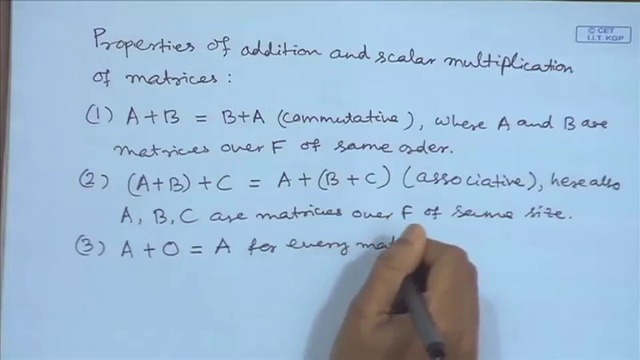 © CET
I.I.T. KGP
Properties of addition and scalar multiplication
of matrices :
(1) A+B = B+A (commutative), where A and B are
matrices over F of same order.
(2) (A+B)+C = A+(B+C) (associative), here also
A, B, C are matrices over F of same size.
(3) A+O = A for every mat